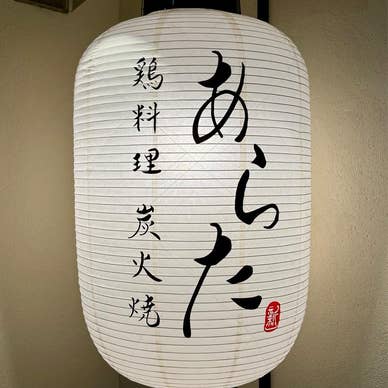 あらた
鶏料理 炭火焼
新